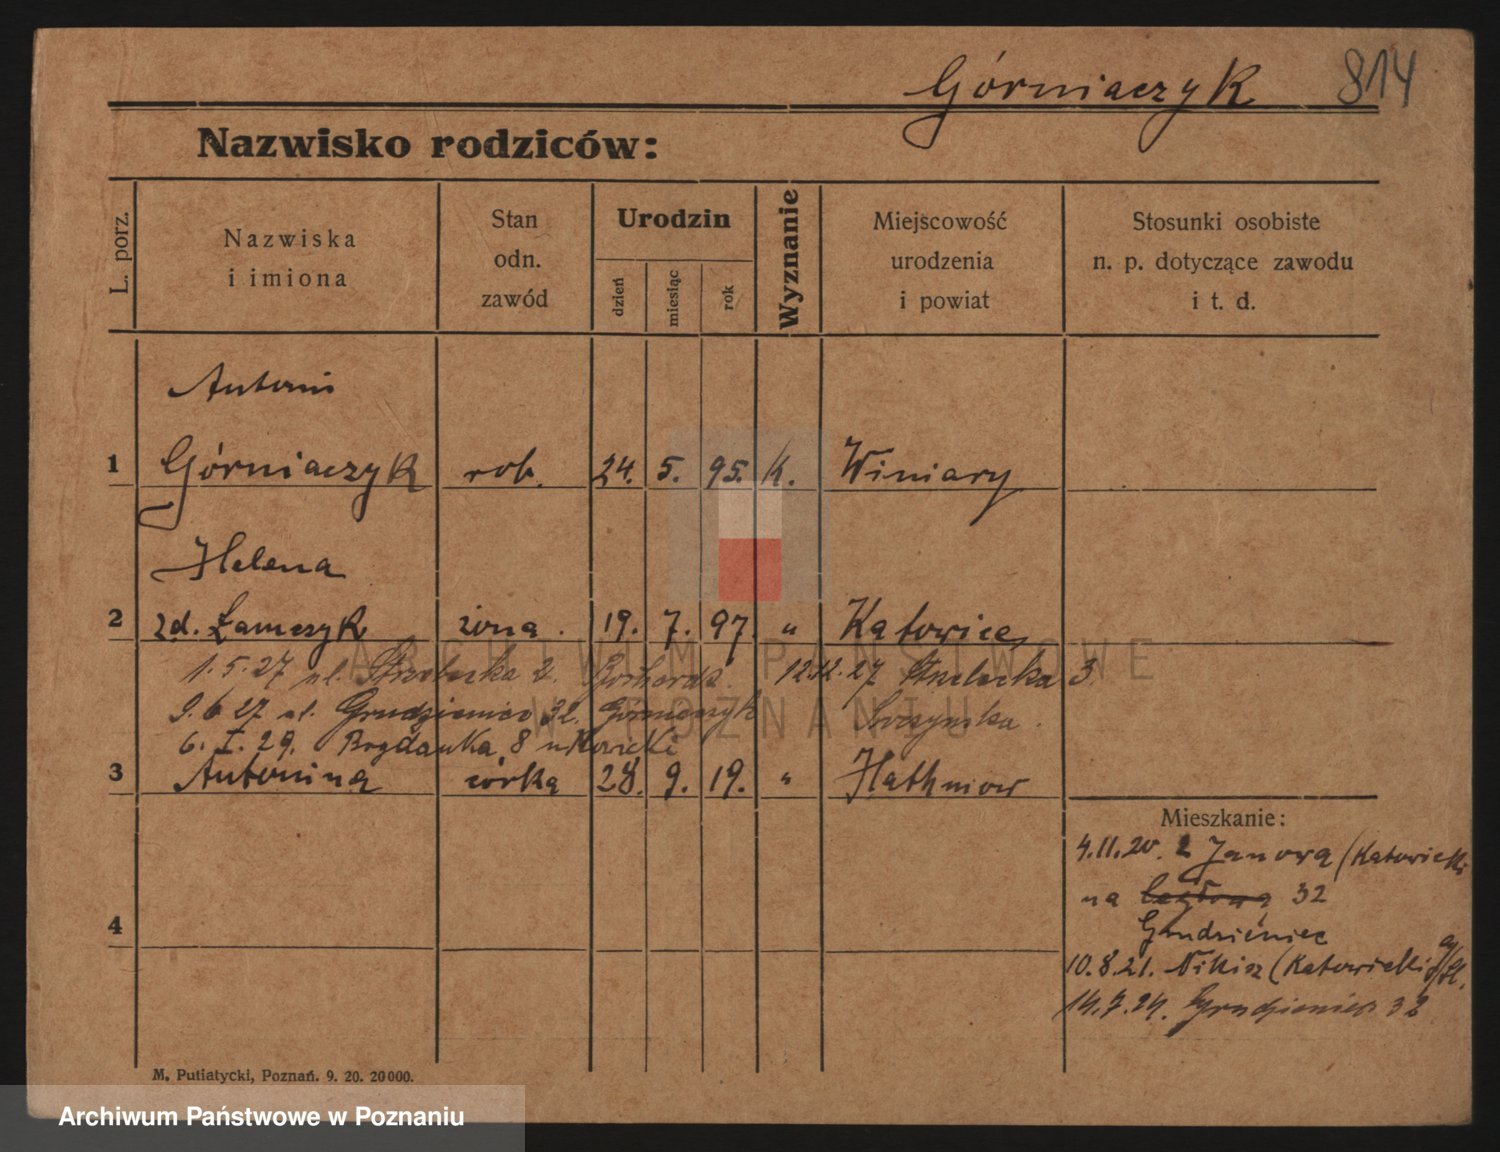 Górniaczyk 814
Nazwisko rodziców:
L. porz.
Nazwiska
i imiona
Stan
odn.
zawód
Urodzin
dzień
miesiąc
rok
Wyznanie
Miejscowość
urodzenia
i powiat
Stosunki osobiste
n. p. dotyczące zawodu
i t. d.
Antoni
1 Górniaczyk rob. 24. 5. 95. K. Winiary
Helena
2 zd. Łamczyk żona. 19. 7. 97. " Katowice
1.5.27 ul. Strzelecka 2. 12.12.27 Strzelecka 3.
9.6.27 ul. Grudzieniec 32. Górniaczyk
6. I. 29. Bogdanka 8 u Nowicki
3 Antonina córka 28. 9. 19. "
Mieszkanie:
4.11.20. z Janowa (Katowicki
na 32
Grudzieniec
4
10.8.21. Nikisz (Katowicki
14.7.24. Grudzieniec 32
M. Putiatycki, Poznań. 9. 20. 20000.
ARCHIWUM PAŃSTWOWE
W POZNANIU
Archiwum Państwowe w Poznaniu